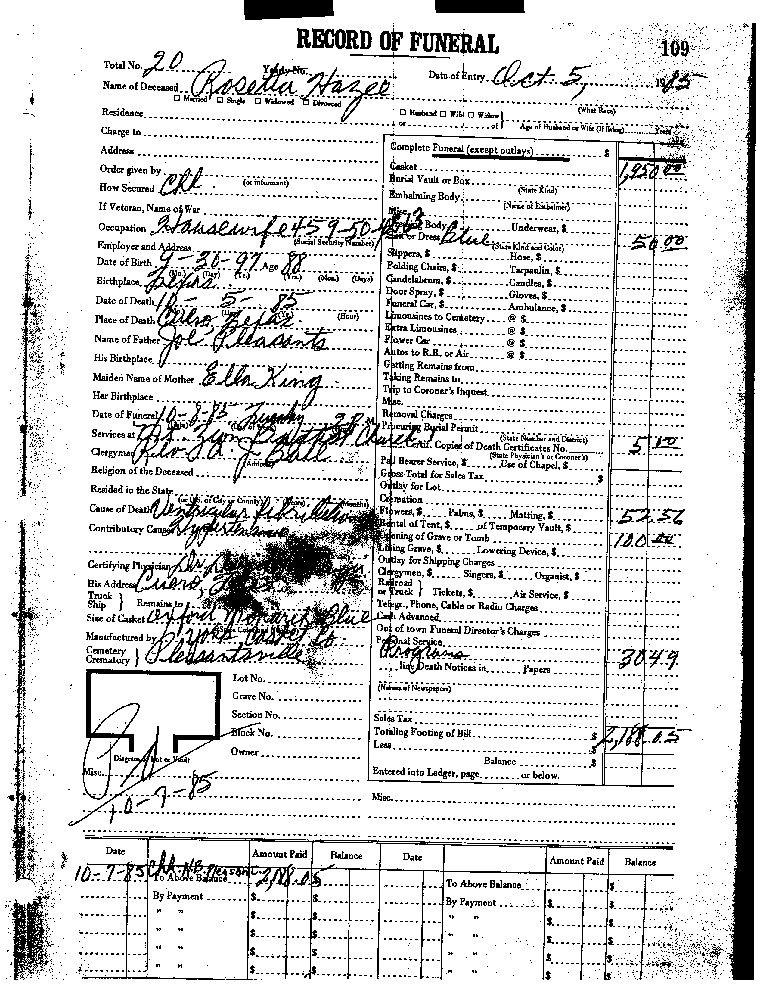 RECORD OF FUNERAL
109
Total No. 20 Yearly No. Date of Entry Oct 5, 1985
Name of Deceased Rosetta Hazel
Married Single Widowed Divorced (What Race)
Residence Husband Wife Widow
or of Age of Husband or Wife (If living) Years
Charge to
Address
Order given by
How Secured Chk. (or informant)
If Veteran, Name of War
Occupation Housewife 459-50-
(Social Security Number)
Employer and Address
Date of Birth 9-30-97 Age 88
(Mo.) (Day) (Yr.) (Yrs.) (Mos.) (Days)
Birthplace Texas
Date of Death 10-5-85
Place of Death Cuero Texas (Hour)
Name of Father Joe Pleasants
His Birthplace
Maiden Name of Mother Ella King
Her Birthplace
Date of Funeral 10-8-85 Tuesday 2 P.M.
Services at Mt. Zion Baptist Church
Clergyman Rev. Ball
(Address)
Religion of the Deceased
Resided in the State
(or Co. or City or County) (Years) (Months)
Cause of Death Ventricular fibrillation
Contributory Cause Hypertension
Certifying Physician Dr.
His Address Cuero, Texas
Truck
Ship } Remains to
Size of Casket Oxford Monarch Blue
Manufactured by York Casket Co
Cemetery
Crematory } Pleasantsville
Lot No.
Grave No.
Section No.
Block No.
Owner
Diagram of Lot or Vault
Misc.
Pd
10-7-85
Complete Funeral (except outlays) $
Casket 1,950 00
Burial Vault or Box
(State Kind)
Embalming Body
(Name of Embalmer)
Misc.
Body Underwear, $
Suit or Dress Blue 50 00
(State Kind and Color)
Slippers, $ Hose, $
Folding Chairs, $ Tarpaulin, $
Candelabrum, $ Candles, $
Door Spray, $ Gloves, $
Funeral Car, $ Ambulance, $
Limousines to Cemetery @ $
Extra Limousines @ $
Flower Car @ $
Autos to R.R. or Air @ $
Getting Remains from
Taking Remains to
Trip to Coroner's Inquest
Misc.
Removal Charges
Procuring Burial Permit
(State Number and District)
Certif. Copies of Death Certificates No. 5 00
(State Physician's or Coroner's)
Pall Bearer Service, $ Use of Chapel, $
Gross Total for Sales Tax $
Outlay for Lot
Cremation
Flowers, $ Palms, $ Matting, $ 52.56
Rental of Tent, $ of Temporary Vault, $
Opening of Grave or Tomb 100 00
Lining Grave, $ Lowering Device, $
Outlay for Shipping Charges
Clergymen, $ Singers, $ Organist, $
Railroad
or Truck } Tickets, $ Air Service, $
Telegr., Phone, Cable or Radio Charges
Cash Advanced
Out of town Funeral Director's Charges
Personal Service
Programs 30 49
line Death Notices in Papers
(Names of Newspapers)
Sales Tax
Totaling Footing of Bill $ 2,188.05
Less $
Balance $
Entered into Ledger, page or below.
Misc.
Date Amount Paid Balance Date Amount Paid Balance
10-7-85 Chk N.B. Pleasant 2,188.05
To Above Balance To Above Balance $
By Payment $ By Payment $
" " $ " " $
" " $ " " $
" " $ " " $
" " $ " " $